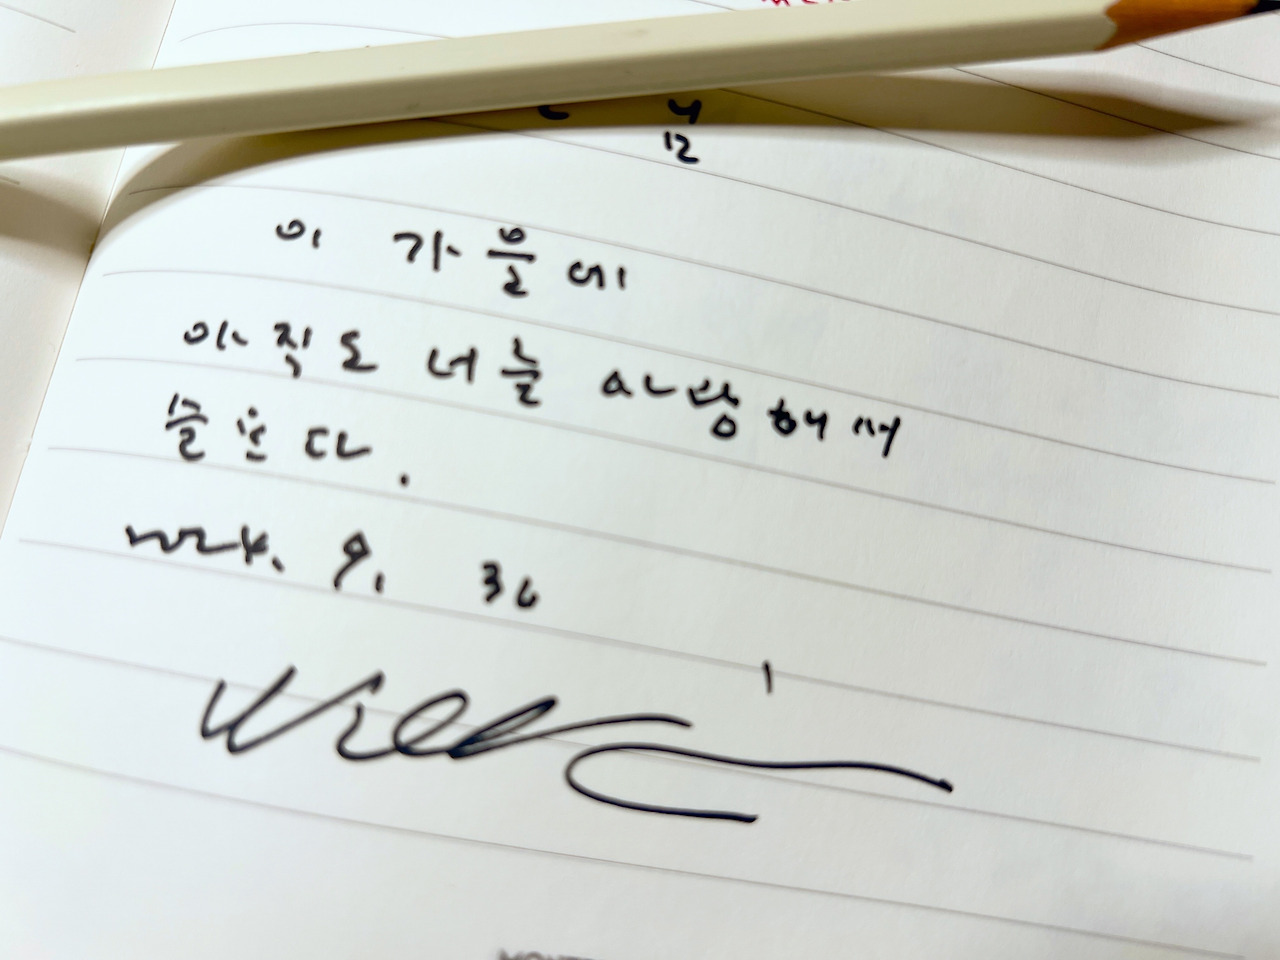 12
이 가을에
아직도 너를 사랑해서
슬프다.
2024. 9. 30